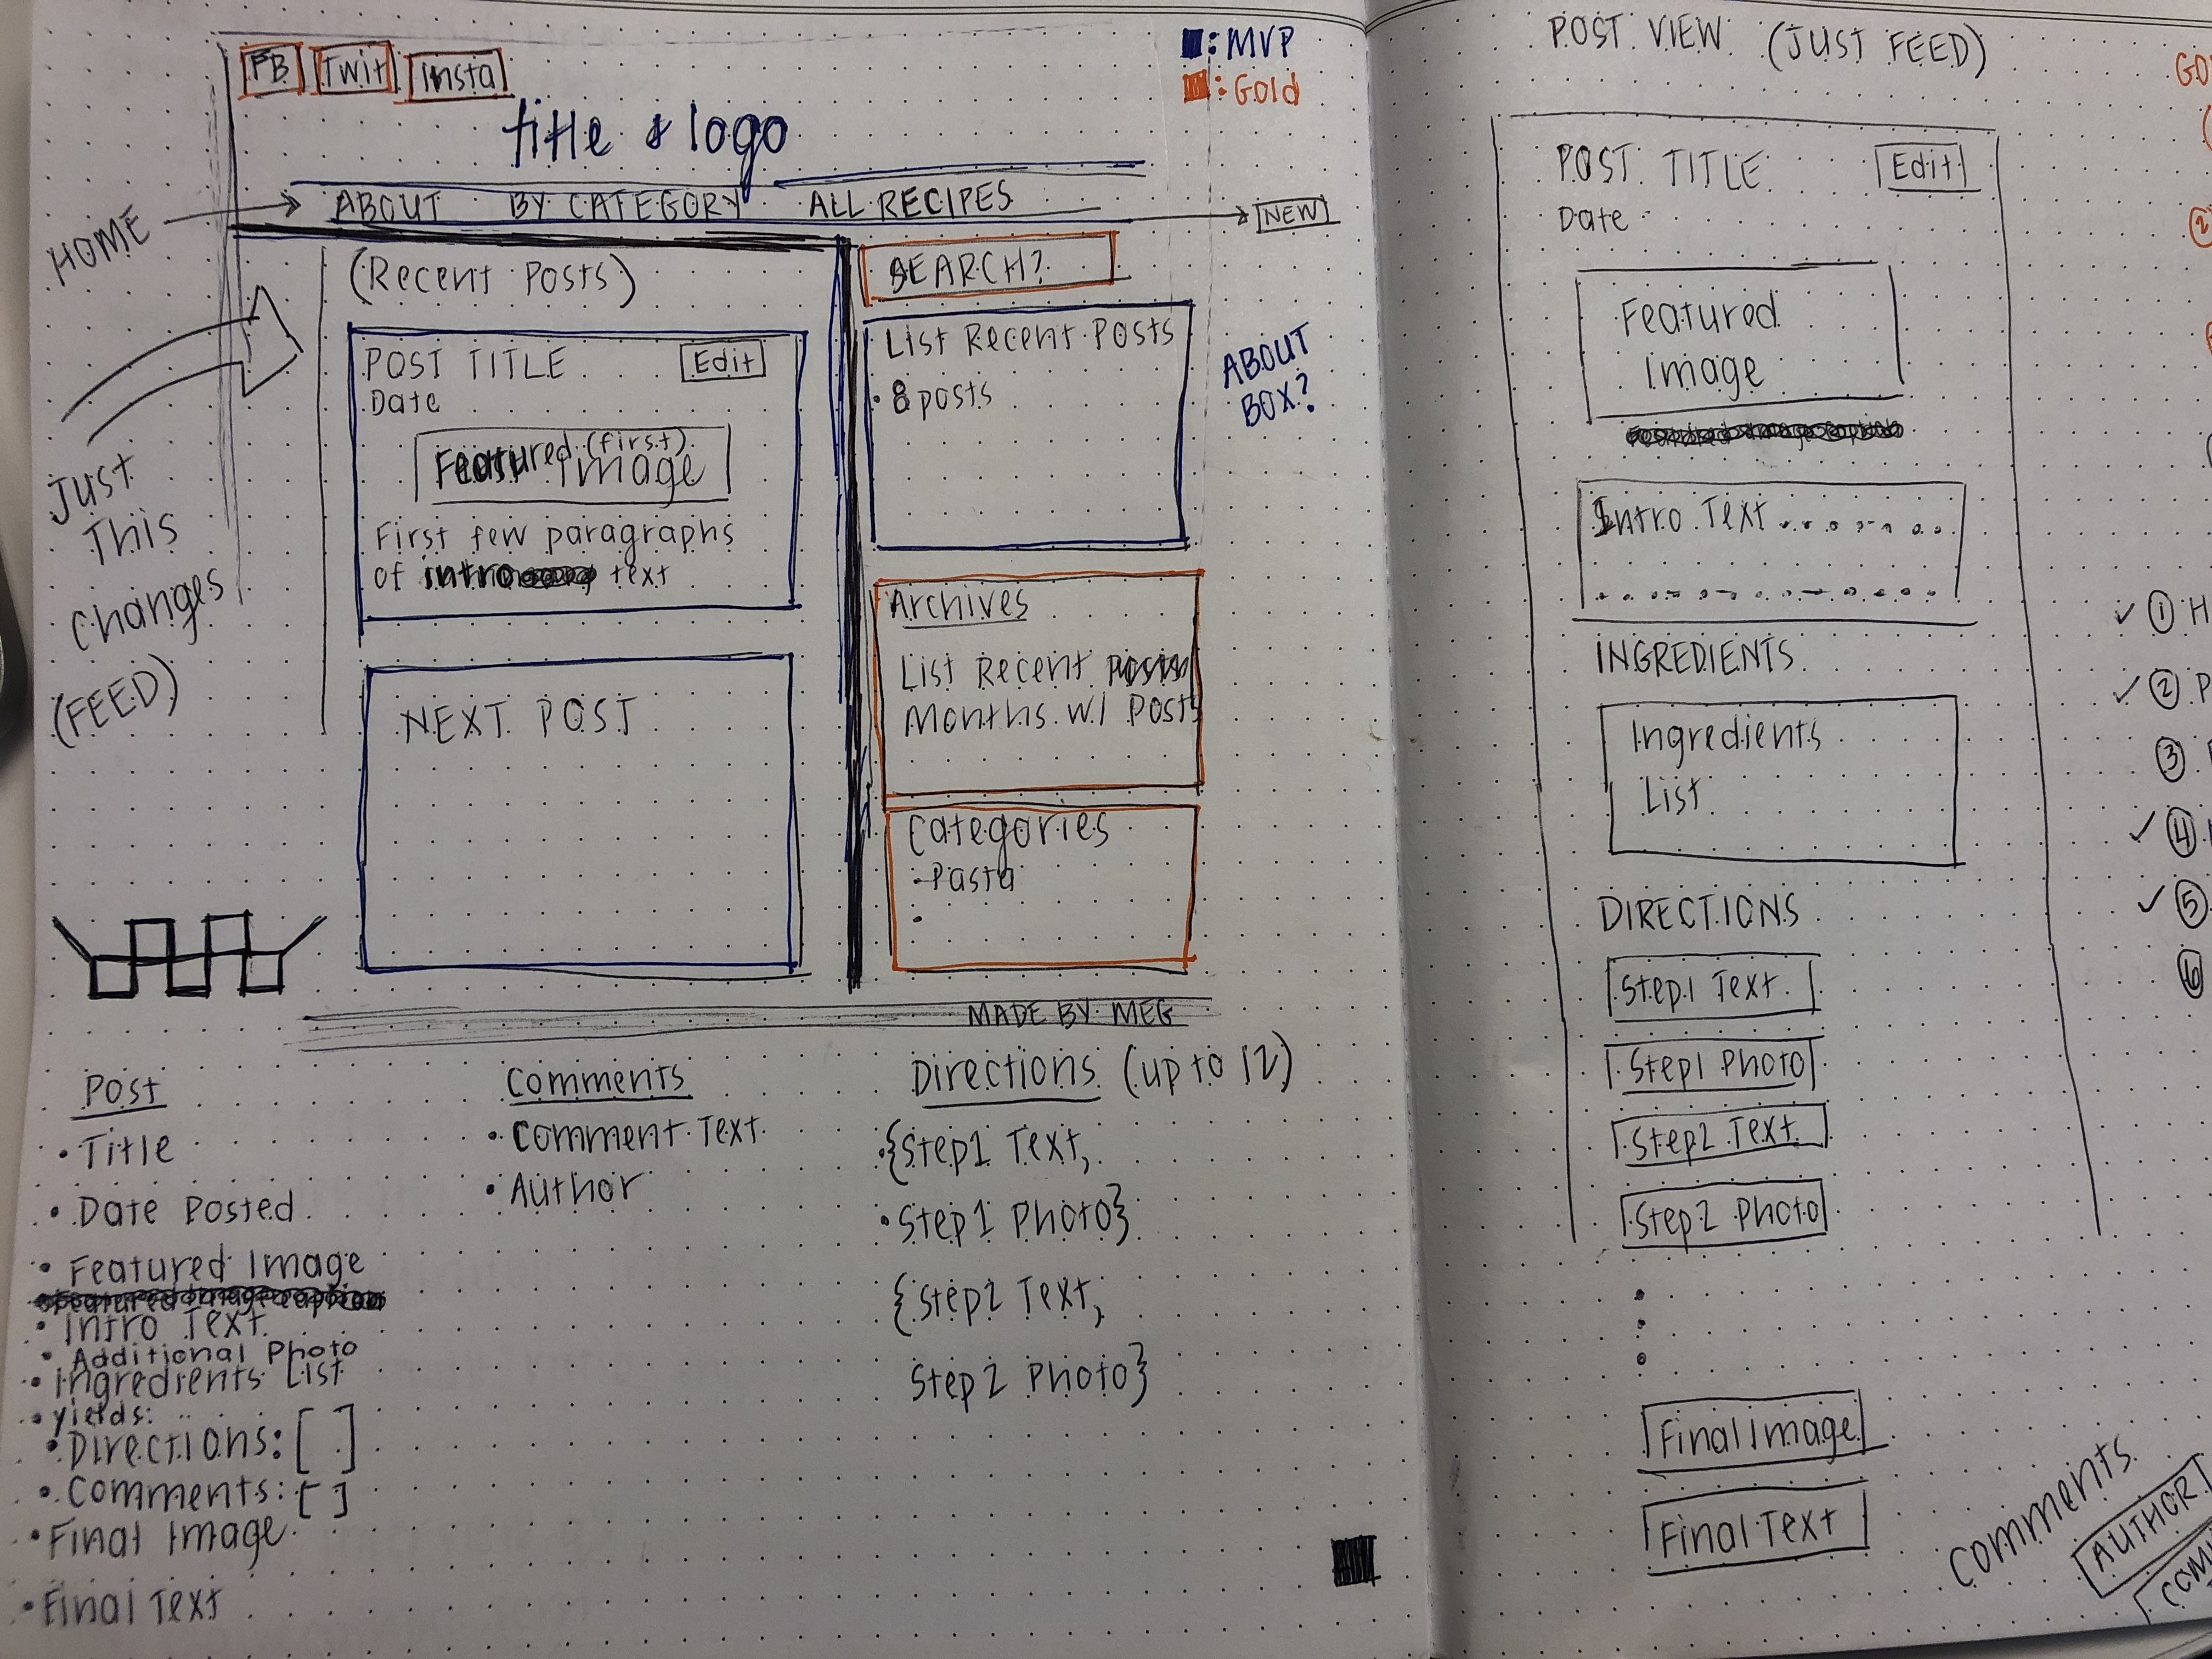 FB Twit Insta
■: MVP
■: Gold
title & logo
HOME
ABOUT BY CATEGORY ALL RECIPES
NEW
(Recent Posts)
POST TITLE Edit
Date
Featured (first)
Image
First few paragraphs
of intro text
NEXT POST
Just
This
Changes
(FEED)
SEARCH?
List Recent Posts
• 8 posts
ABOUT
BOX?
Archives
List Recent
Months w/ Posts
Categories
- Pasta
•
MADE BY MEG
Post
• Title
• Date Posted
• Featured Image
• Featured Image Caption
• Intro Text
• Additional Photo
• Ingredients List
• yields:
• Directions: [ ]
• Comments: [ ]
• Final Image
• Final Text
Comments
• Comment Text
• Author
Directions (up to 12)
• {Step1 Text,
• Step1 Photo}
{Step2 Text,
Step2 Photo}
POST VIEW (JUST FEED)
POST TITLE Edit
Date
Featured
Image
Featured Image Caption
Intro Text
INGREDIENTS
Ingredients
List
DIRECTIONS
Step1 Text
Step1 Photo
Step2 Text
Step2 Photo
Final Image
Final Text
Comments
AUTHOR
GO
②
✓ ① H
✓ ② P
③
✓ ④
✓ ⑤
⑥